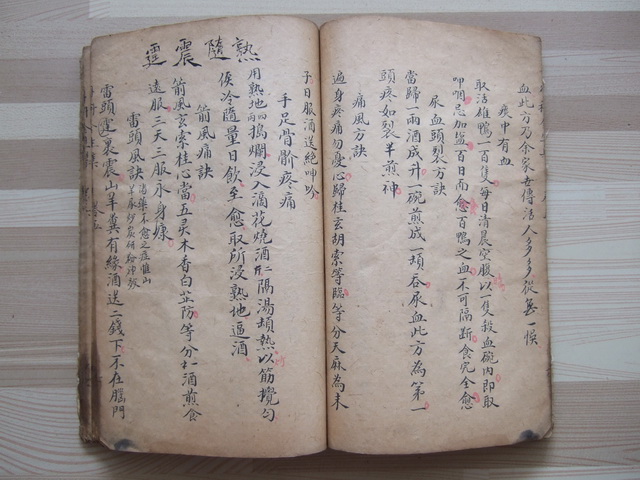 血此方乃余家世傳活人多多從無一悞
痰中有血
取活雄鴨一百隻每日清晨空腹以一隻殺血碗内即取
呷咽忌加盐百日而愈百鴨之血不可隔断食完全愈
尿血頭裂方訣
當歸一兩酒成升一碗煎成一頓吞尿血此方為第一
頭疼如裂羊煎神
痛風方訣
遍身疼痛勿憂心歸桂玄胡索等臨等分天麻為末
子日服酒送絕呻吟
手足骨骱疼痛
用熟地兩搗爛浸入滴花燒酒二斤隔湯頓熱以筋攪勻
俟冷隨量日飲至愈取所浸熟地逼酒
箭風痛訣
箭風玄索桂心當五灵木香白芷防等分水酒煎食
遠服三天三服永身㾾
雷頭風訣
雷頭裏震山羊糞有緣酒送二錢下不在腦門
霆震隨熟